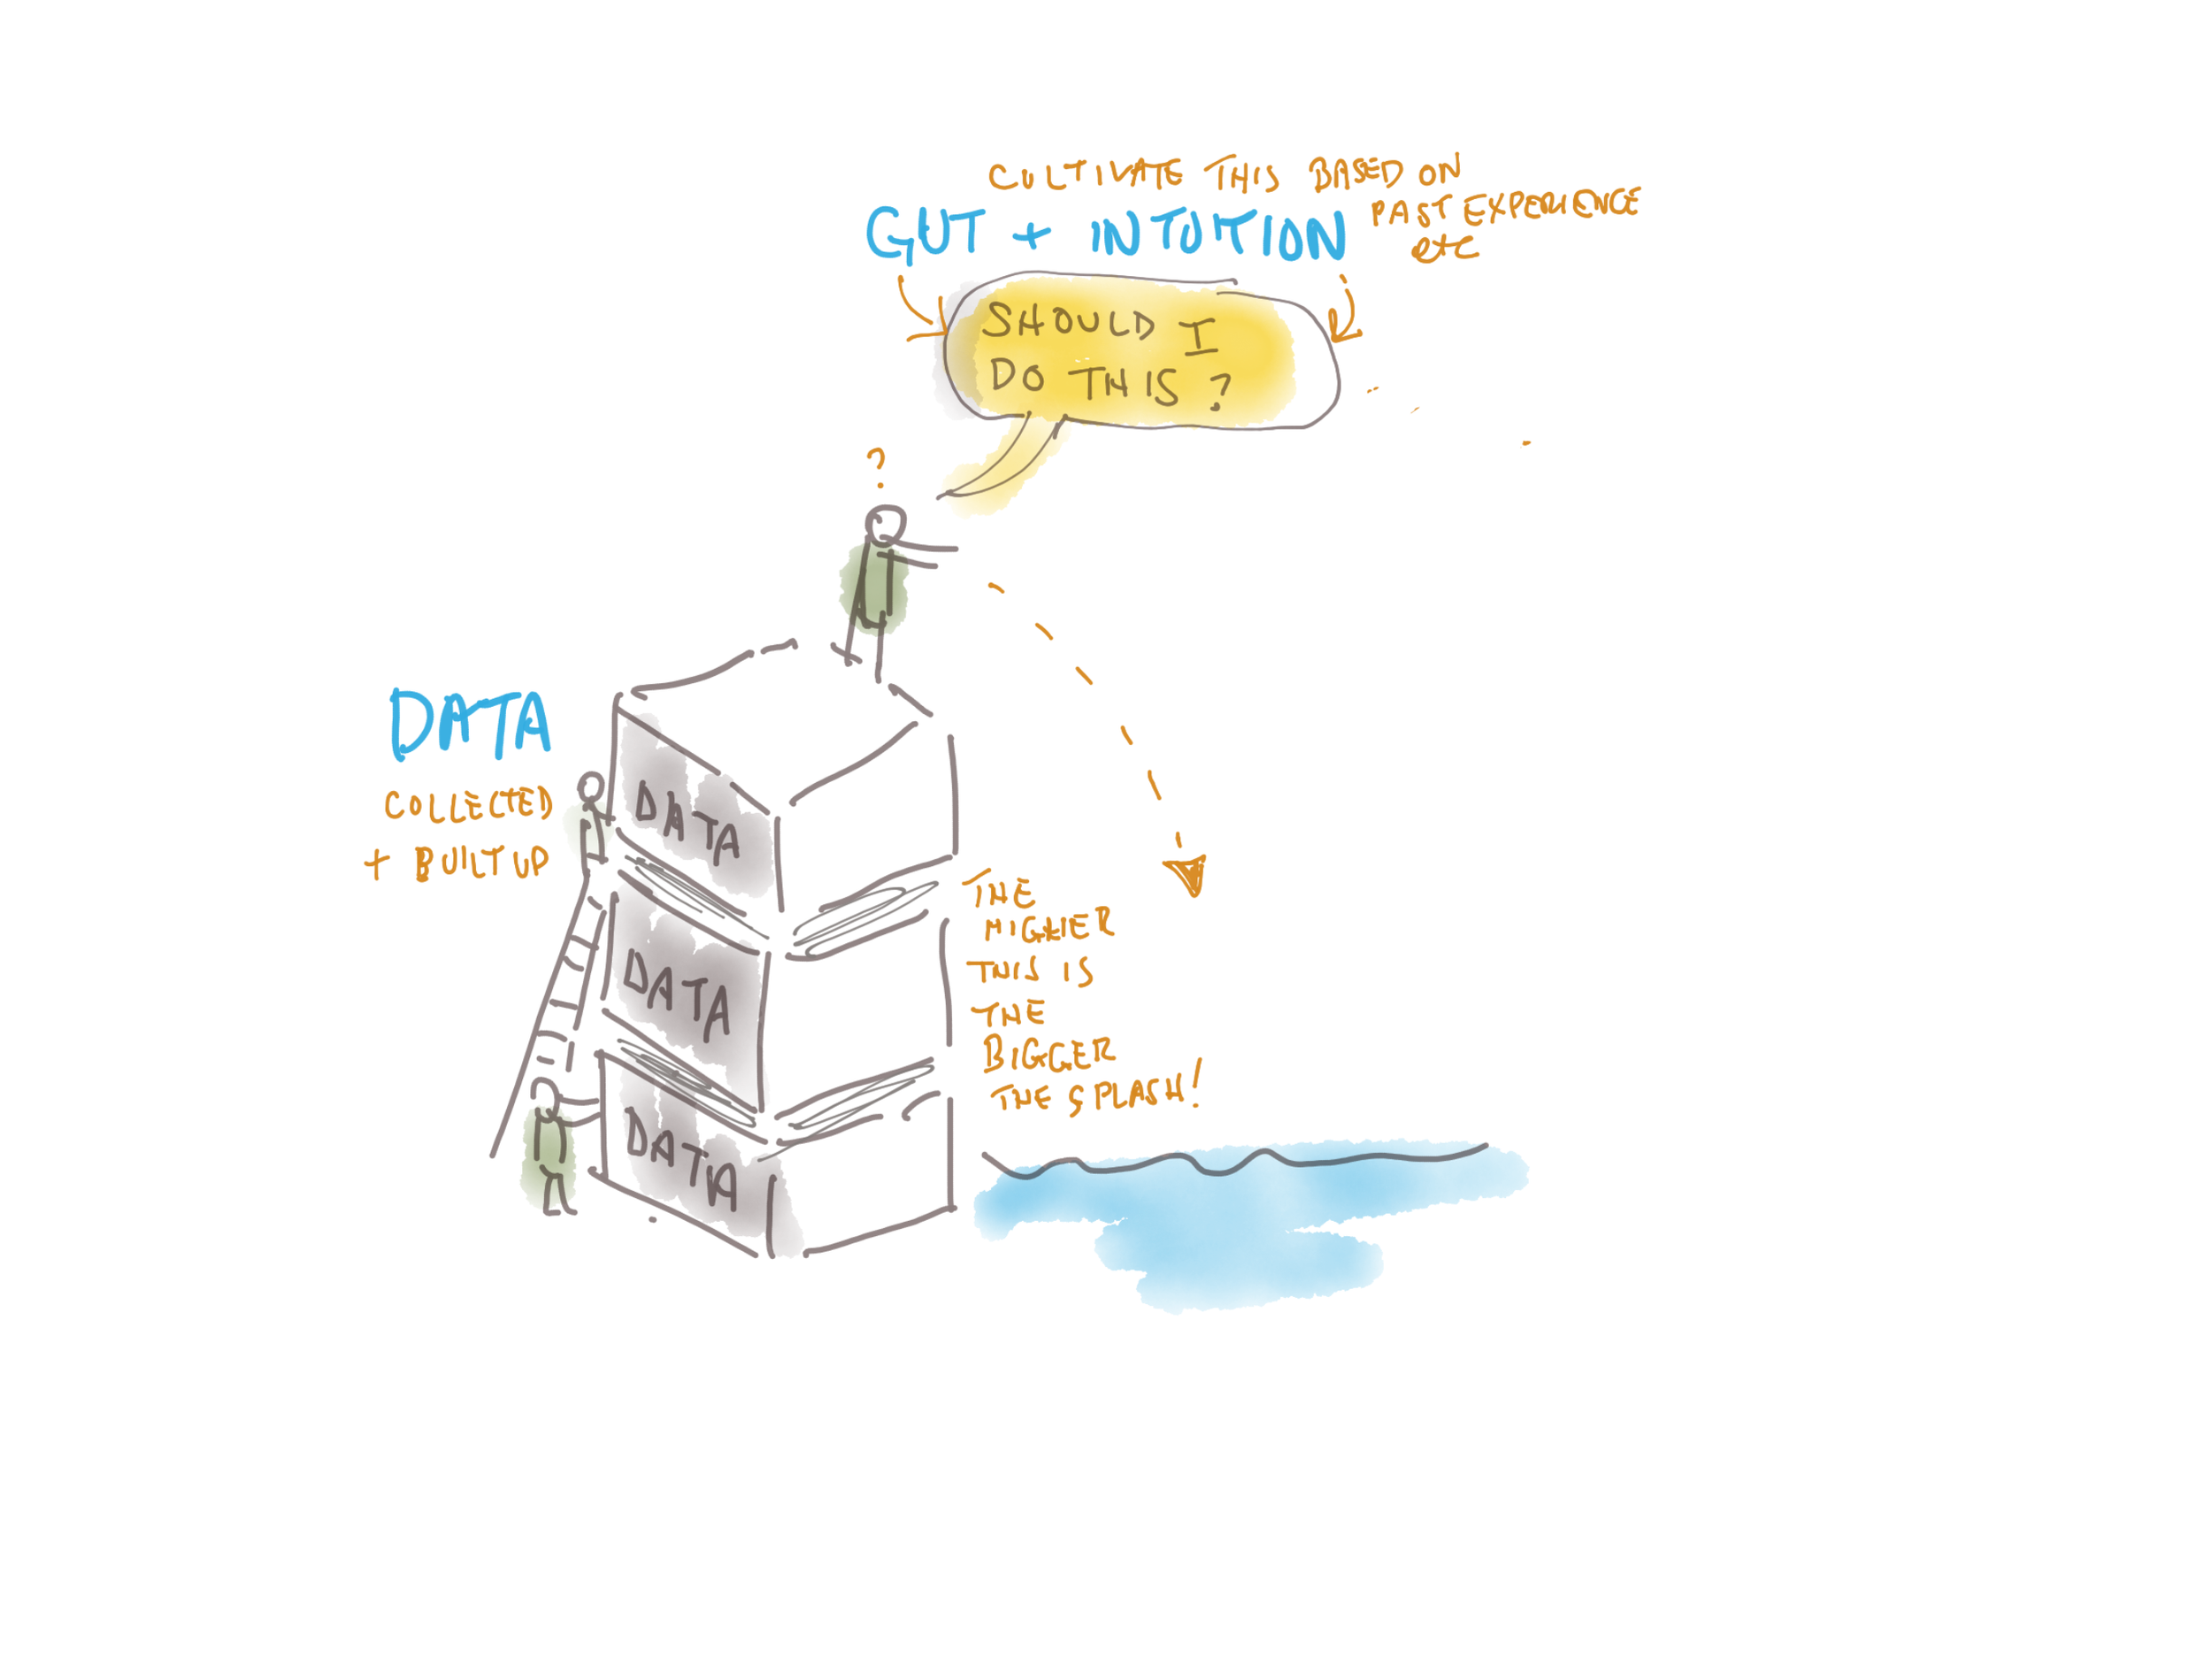 CULTIVATE THIS BASED ON
PAST EXPERIENCE
etc
GUT + INTUITION
SHOULD I
DO THIS?
?
DATA
COLLECTED
+ BUILT UP
DATA
DATA
DATA
THE
HIGHER
THIS IS
THE
BIGGER
THE SPLASH!